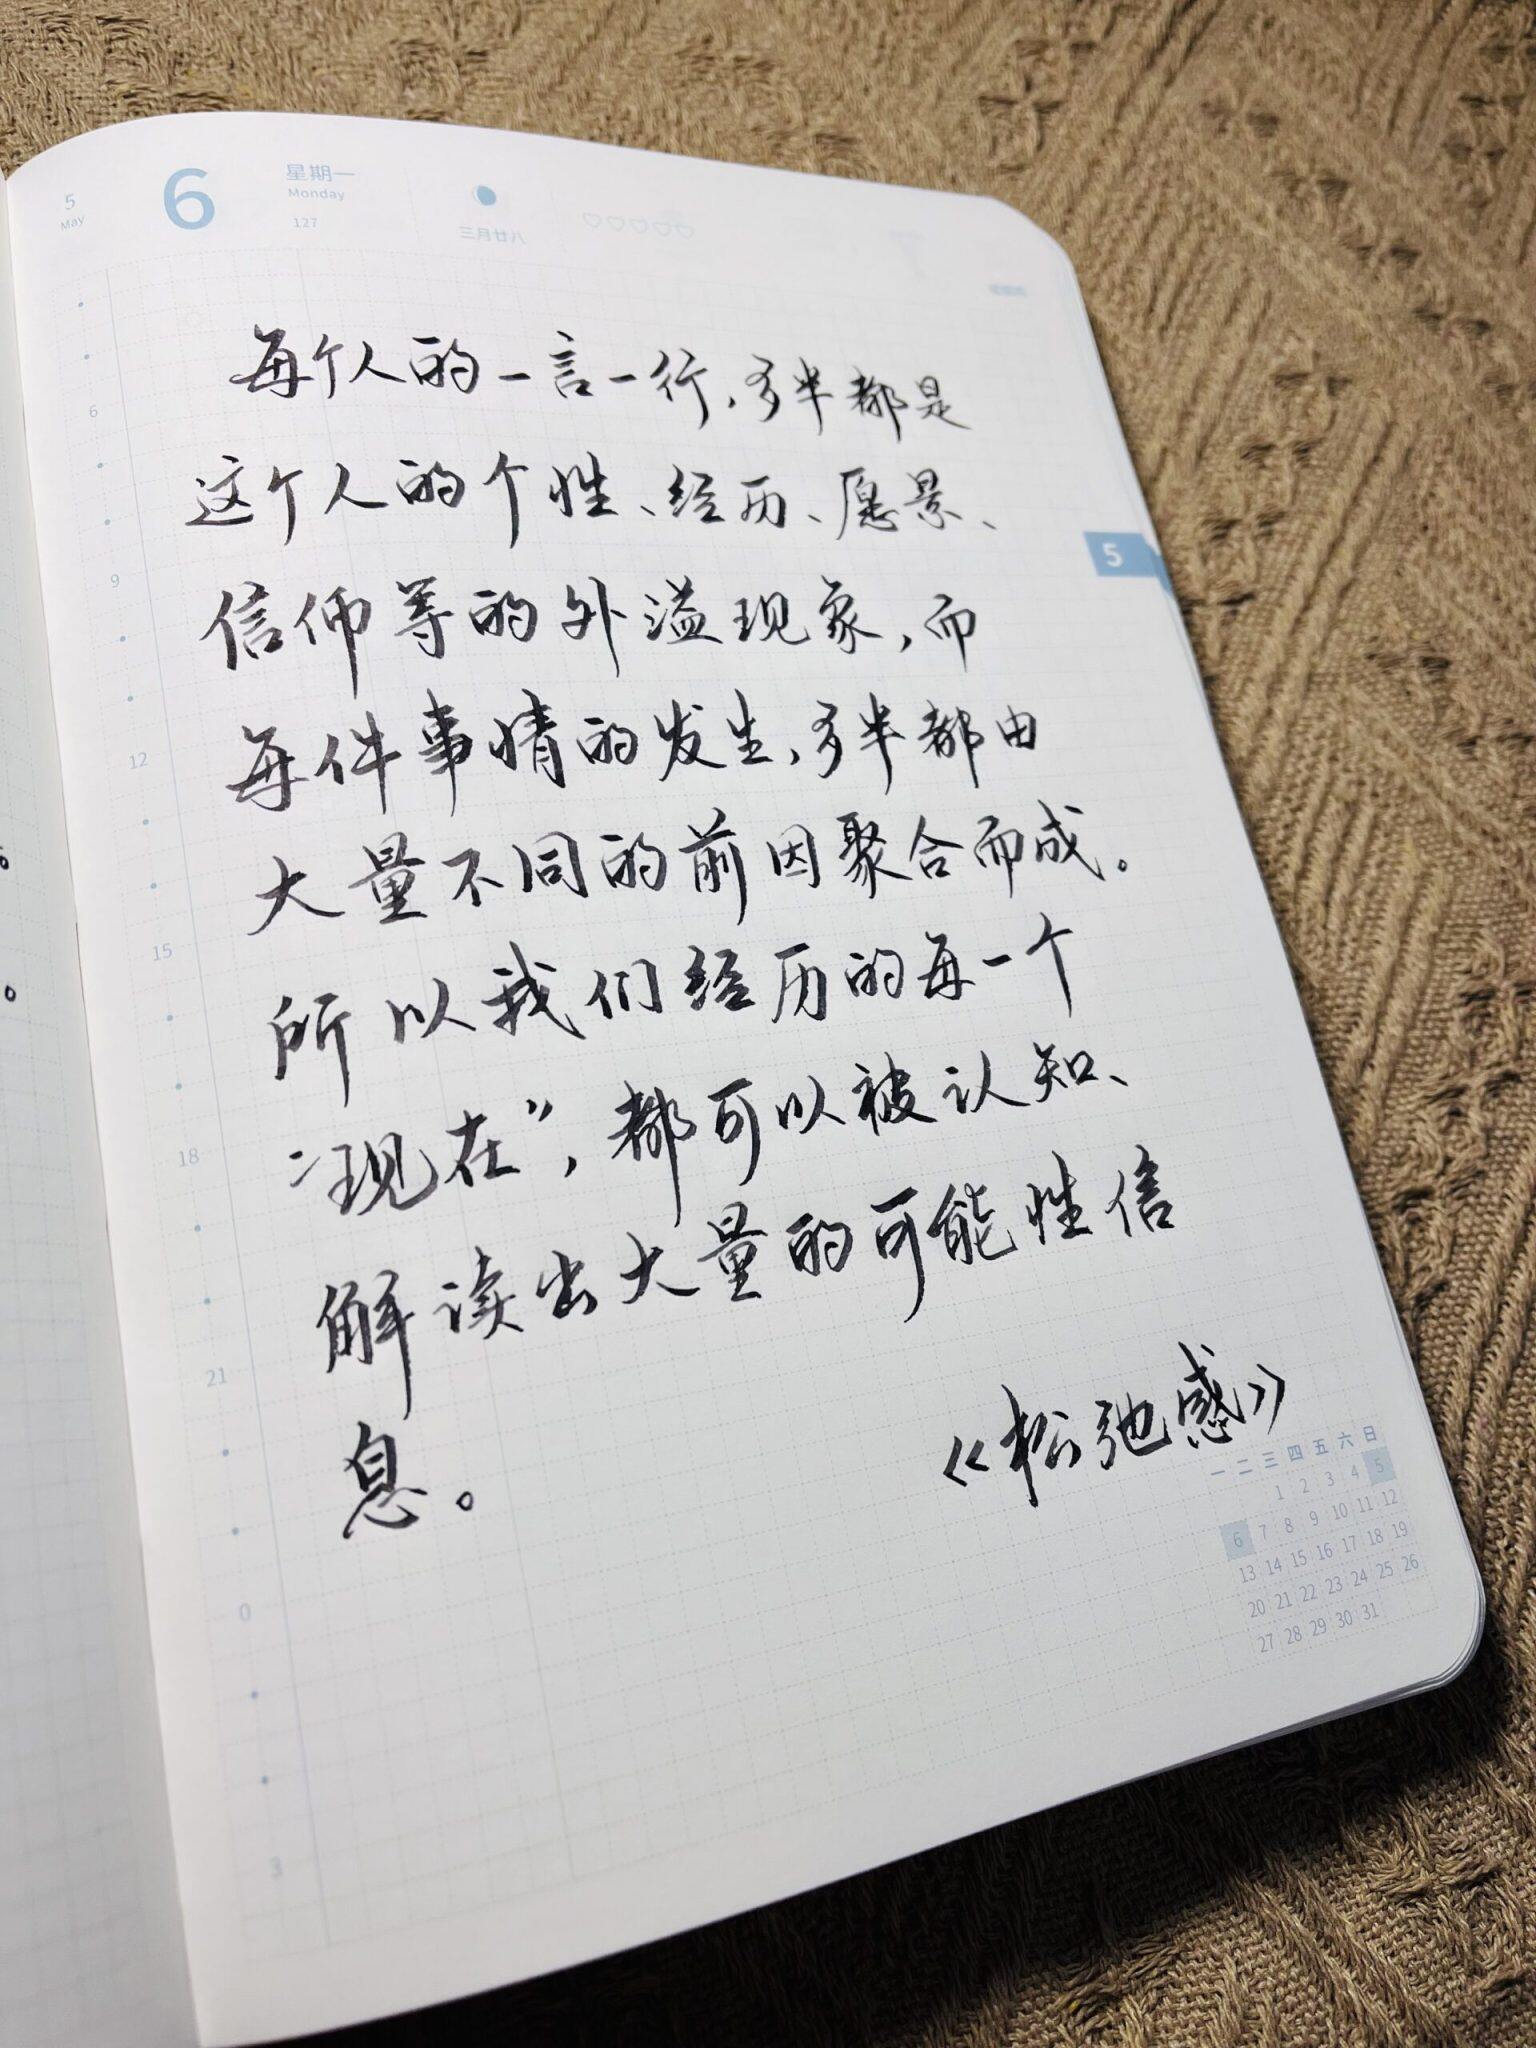 5
May
6
星期一
Monday
127
三月廿八
每个人的一言一行，多半都是
这个人的个性、经历、愿景、
信仰等的外溢现象，而
每件事情的发生，多半都由
大量不同的前因聚合而成。
所以我们经历的每一个
“现在”，都可以被认知、
解读出大量的可能性信
息。
《松弛感》
5
6
9
12
15
18
21
0
3
一 二 三 四 五 六 日
1 2 3 4 5
6 7 8 9 10 11 12
13 14 15 16 17 18 19
20 21 22 23 24 25 26
27 28 29 30 31